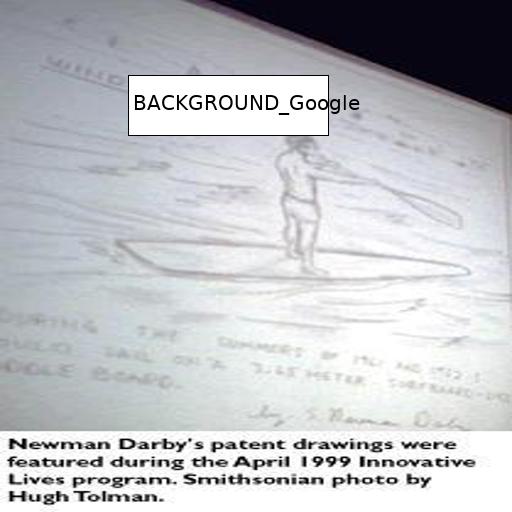 WIND
BACKGROUND_Google
DURING THE SUMMERS OF 1961 AND 1962 I
WOULD SAIL ON A 3.65 METER
PADDLE BOARD.
by S. Newman Darby
Newman Darby's patent drawings were
featured during the April 1999 Innovative
Lives program. Smithsonian photo by
Hugh Tolman.